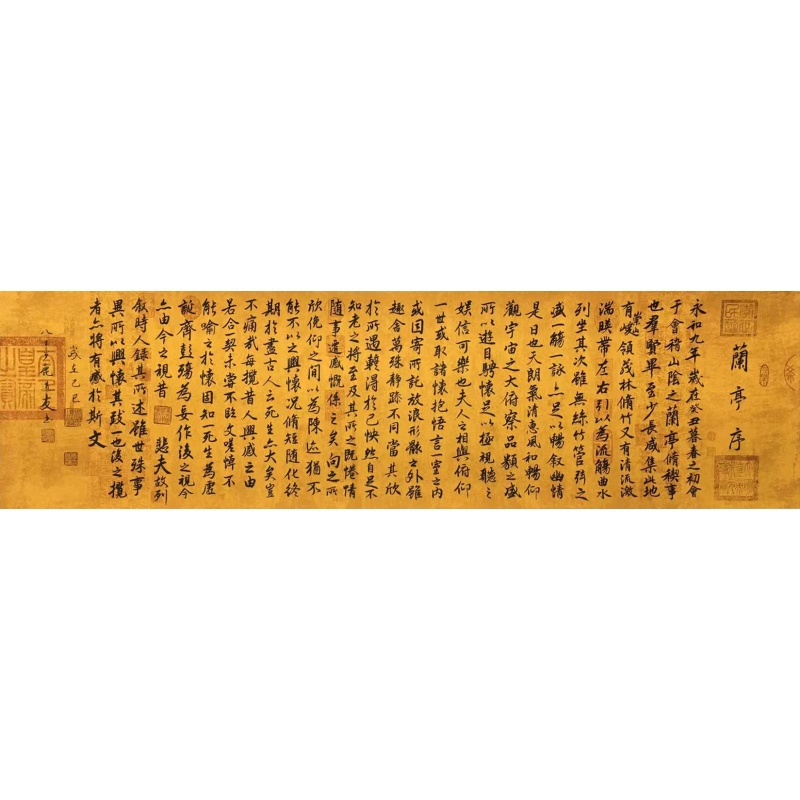 蘭亭序
永和九年歲在癸丑暮春之初會
于會稽山陰之蘭亭脩稧事
也羣賢畢至少長咸集此地
有崇山峻領茂林脩竹又有清流激
湍暎帶左右引以為流觴曲水
列坐其次雖無絲竹管弦之
盛一觴一詠亦足以暢敘幽情
是日也天朗氣清惠風和暢仰
觀宇宙之大俯察品類之盛
所以遊目騁懷足以極視聽之
娛信可樂也夫人之相與俯仰
一世或取諸懷抱悟言一室之內
或因寄所託放浪形骸之外雖
趣舍萬殊靜躁不同當其欣
於所遇暫得於己怏然自足不
知老之將至及其所之既惓情
隨事遷感慨係之矣向之所
欣俛仰之間以為陳迹猶不
能不以之興懷況脩短隨化終
期於盡古人云死生亦大矣豈
不痛哉每攬昔人興感之由
若合一契未嘗不臨文嗟悼不
能喻之於懷固知一死生為虛
誕齊彭殤為妄作後之視今
亦由今之視昔 悲夫故列
敘時人錄其所述雖世殊事
異所以興懷其致一也後之攬
者亦將有感於斯文
歲在己巳